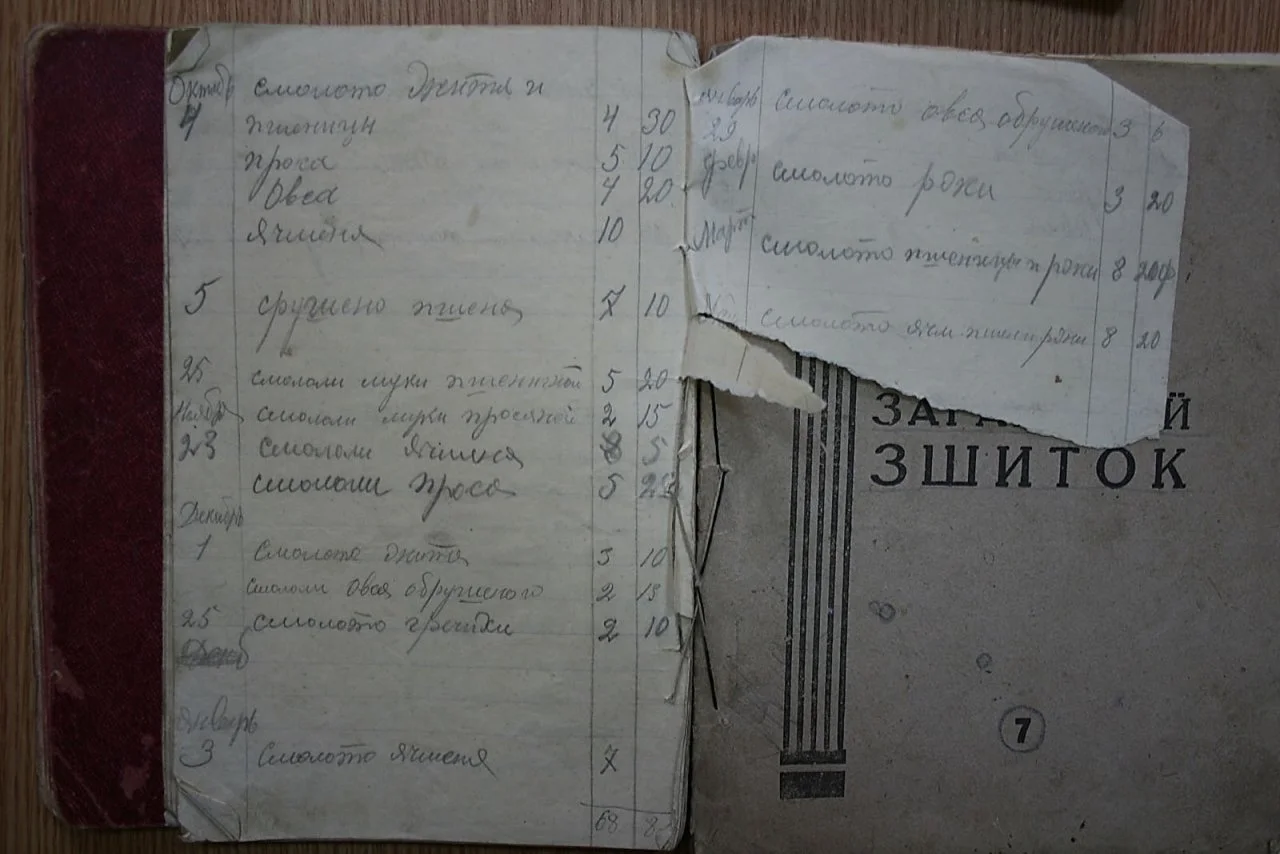 Октябр смолото Жита и
4 пшеницы 4 30
проса 5 10
Овса 4 20
ячменя 10
5 срушено пшена 7 10
25 смололи муки пшеничной 5 20
Ноябрь смололи муки просяной 2 15
23 смололи ячменя 5
смололи проса 5
Декабрь
1 Смолота жита 3 10
смололи овса обрушеного 2 13
25 смолото гречихи 2 10
Январь
3 Смолото ячменя 7
68
Январь смолото овса обрушеного 3 6
29
февр смолото рожи 3 20
Март смолото пшеницы и рожи 8 20ф
смолото ячм пшен рожи 8 20
ЗШИТОК
7